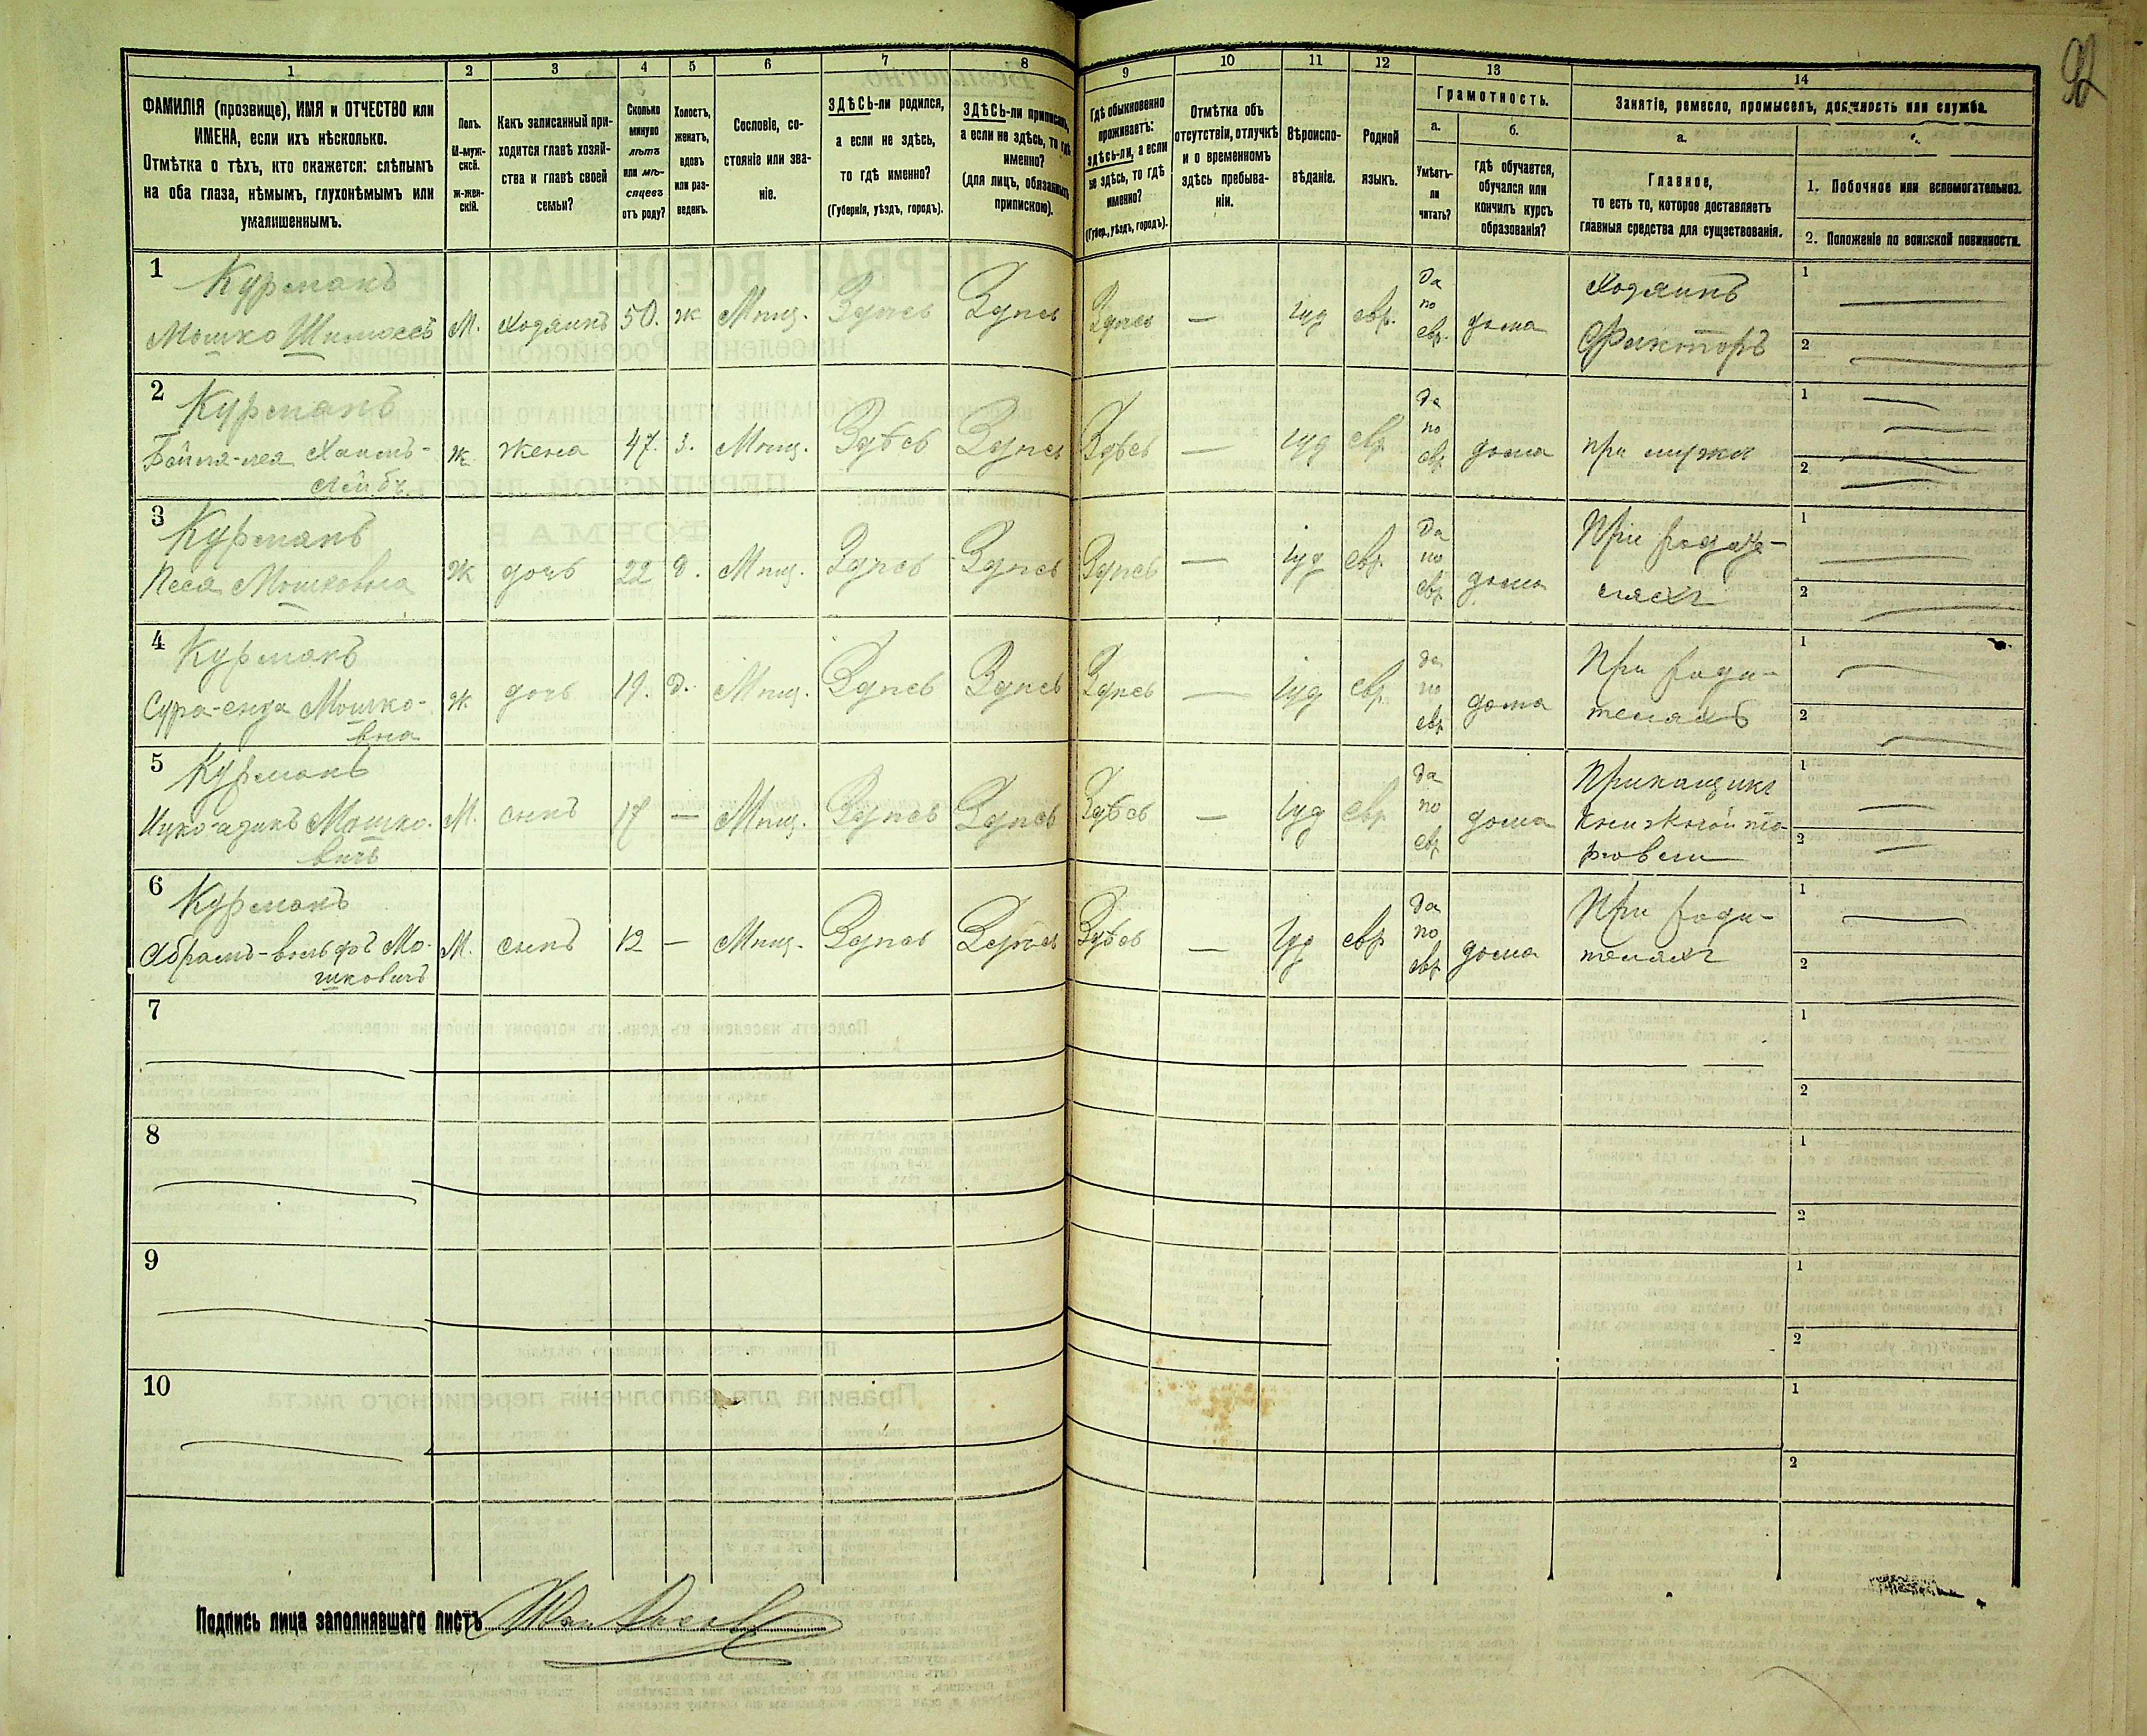 92
1 2 3 4 5 6 7 8 9 10 11 12 13 14
ФАМИЛІЯ (прозвище), ИМЯ и ОТЧЕСТВО или
ИМЕНА, если ихъ нѣсколько.
Отмѣтка о тѣхъ, кто окажется: слѣпымъ
на оба глаза, нѣмымъ, глухонѣмымъ или
умалишеннымъ.
Полъ.
М-муж-
ской.
ж-жен-
скій.
Какъ записанный при-
ходится главѣ хозяй-
ства и главѣ своей
семьи?
Сколько
минуло
лѣтъ
или мѣ-
сяцевъ
отъ роду?
Холостъ,
женатъ,
вдовъ
или раз-
веденъ.
Сословіе, со-
стояніе или зва-
ніе.
ЗДѢСЬ-ли родился,
а если не здѣсь,
то гдѣ именно?
(Губернія, уѣздъ, городъ).
ЗДѢСЬ-ли приписанъ,
а если не здѣсь, то гдѣ
именно?
(для лицъ, обязанныхъ
припискою).
Гдѣ обыкновенно
проживаетъ:
здѣсь-ли, а если
не здѣсь, то гдѣ
именно?
(Губер., уѣздъ, городъ).
Отмѣтка объ
отсутствіи, отлучкѣ
и о временномъ
здѣсь пребыва-
ніи.
Вѣроиспо-
вѣданіе.
Родной
языкъ.
Грамотность.
а.
Умѣетъ-
ли
читать?
б.
гдѣ обучается,
обучался или
кончилъ курсъ
образованія?
Занятіе, ремесло, промыселъ, должность или служба.
а.
Главное,
то есть то, которое доставляетъ
главныя средства для существованія.
1. Побочное или вспомогательное.
2. Положеніе по воинской повинности.
1
Курманъ
Мошко
М. Хозяинъ 50. Ж Мѣщ. Здѣсь Здѣсь Здѣсь — іуд евр. Да по евр. дома
Хозяинъ
Факторъ
1
2
2
Курманъ
Хаимъ-
Лейб.
Ж жена 47. З. Мѣщ. Здѣсь Здѣсь Здѣсь — іуд евр да по евр дома при мужѣ
1
2
3
Курманъ
Песя Мошковна
Ж дочь 22 Д. Мѣщ. Здѣсь Здѣсь Здѣсь — іуд евр. Да по евр дома
При роди-
теляхъ
1
2
4
Курманъ
Мошко-
вна
Ж. дочь 19. Д. Мѣщ. Здѣсь Здѣсь Здѣсь — іуд евр. да по евр дома
При роди-
теляхъ
1
2
5
Курманъ
Мошко-
вичъ
М. сынъ 17 — Мѣщ. Здѣсь Здѣсь Здѣсь — іуд евр да по евр дома
Прикащикъ
книжной то-
рговли
1
2
6
Курманъ
Абрамъ-вольфъ Мо-
шковичъ
М. сынъ 12 — Мѣщ. Здѣсь Здѣсь Здѣсь — іуд евр да по евр дома
При роди-
теляхъ
1
2
7
1
2
8
1
2
9
1
2
10
1
2
Подпись лица заполнявшаго листъ